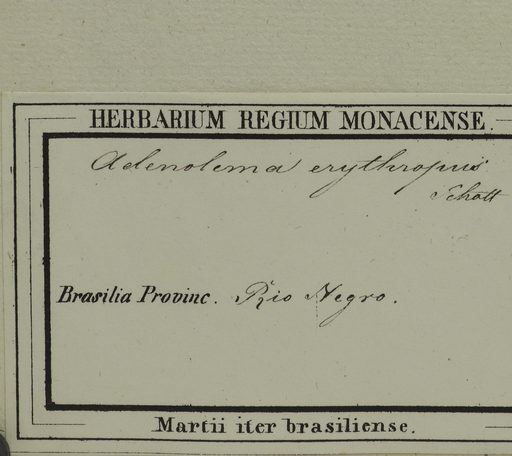 HERBARIUM REGIUM MONACENSE.
Adenolema erythropus
Schott
Brasilia Provinc. Rio Negro.
Martii iter brasiliense.